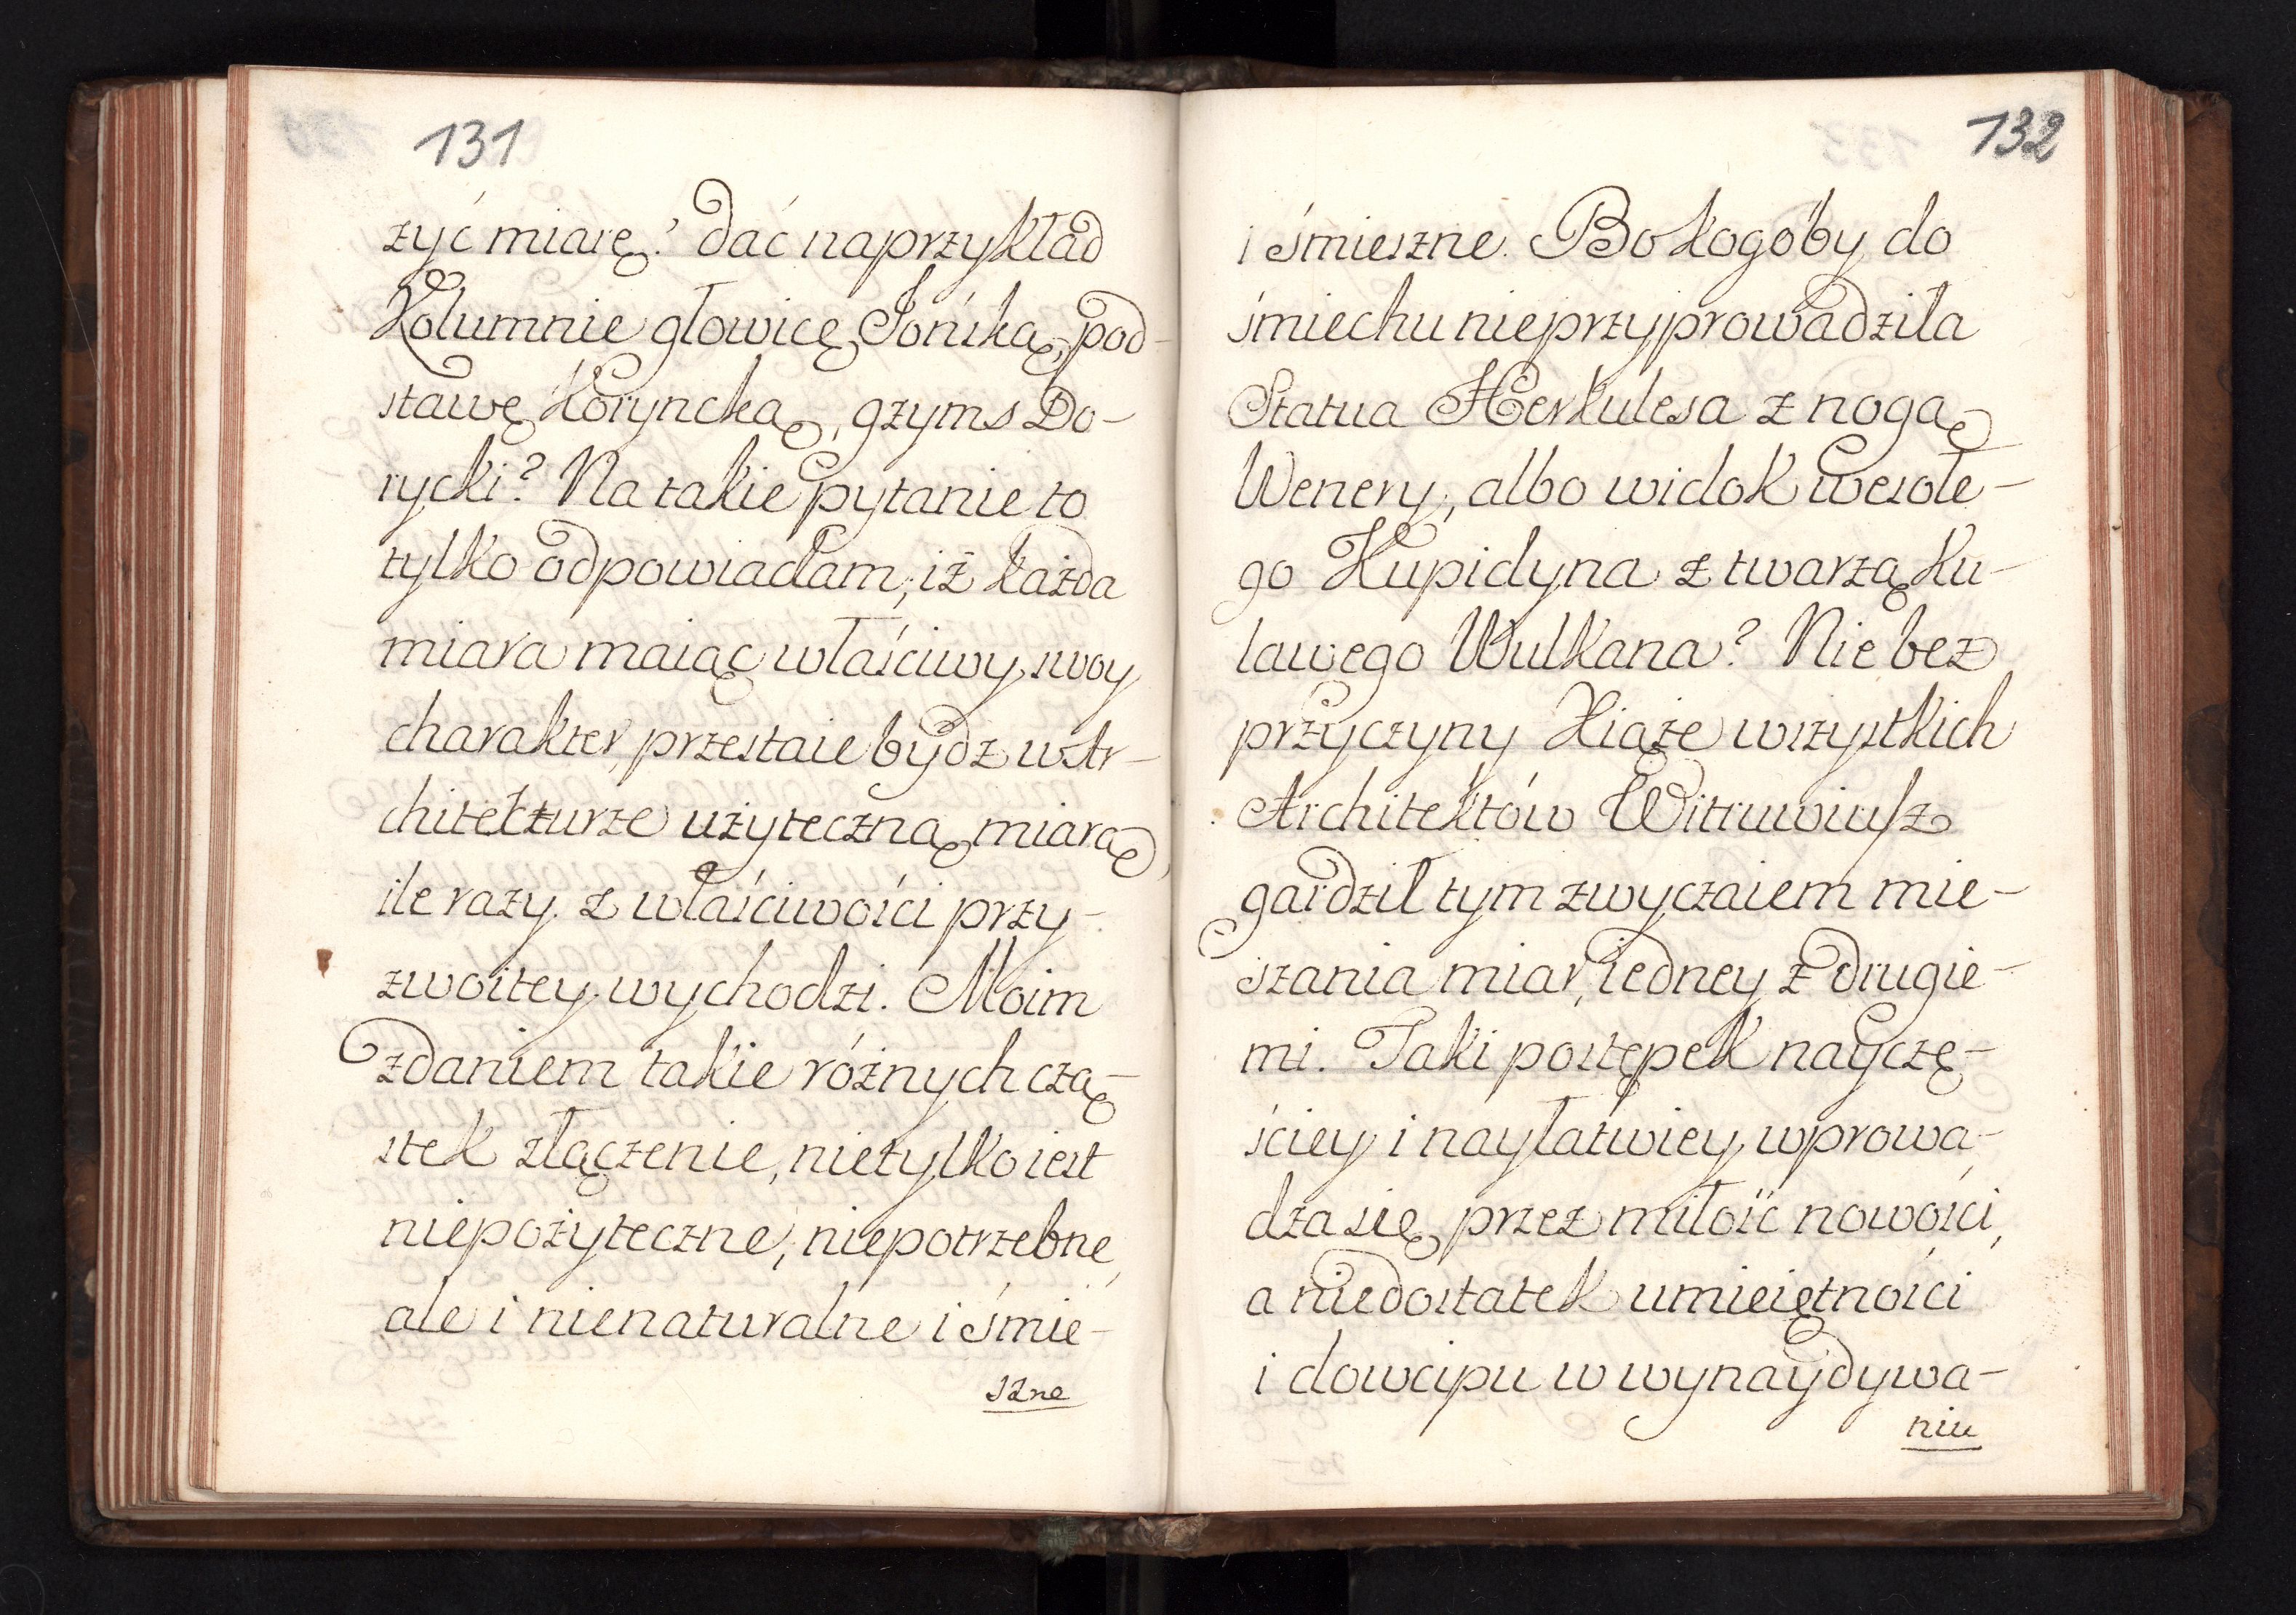 131
żyć miarę? dać naprzykład
Kolumnie głowicę Jońską, pod-
stawę Koryncką, gzyms Do-
rycki? Na takie pytanie to
tylko odpowiadam, iż każda
miara maiąc właściwy swoy
charakter, przestaie bydz w Ar-
chitekturze użyteczną miarą,
ile razy z właściwości przy-
zwoitey wychodzi. Moim
zdaniem takie różnych czą-
stek złączenie, nietylko iest
niepożyteczne, niepotrzebne,
ale i nienaturalne i śmie-
szne
132
i śmieszne. Bo kogóby do
śmiechu nieprzyprowadziła
Statua Herkulesa z nogą
Wenery, albo widok wesołe-
go Kupidyna z twarzą ku-
lawego Wulkana? Nie bez
przyczyny Xiąże wszystkich
Architektów Witruwiusz
gardził tym zwyczaiem mie-
szania miar, iedney z drugie-
mi. Taki postępek nayczę-
ściey i nayłatwiey wprowa-
dza się przez miłość nowości,
a niedostatek umieiętności
i dowcipu w wynaydywa-
niu